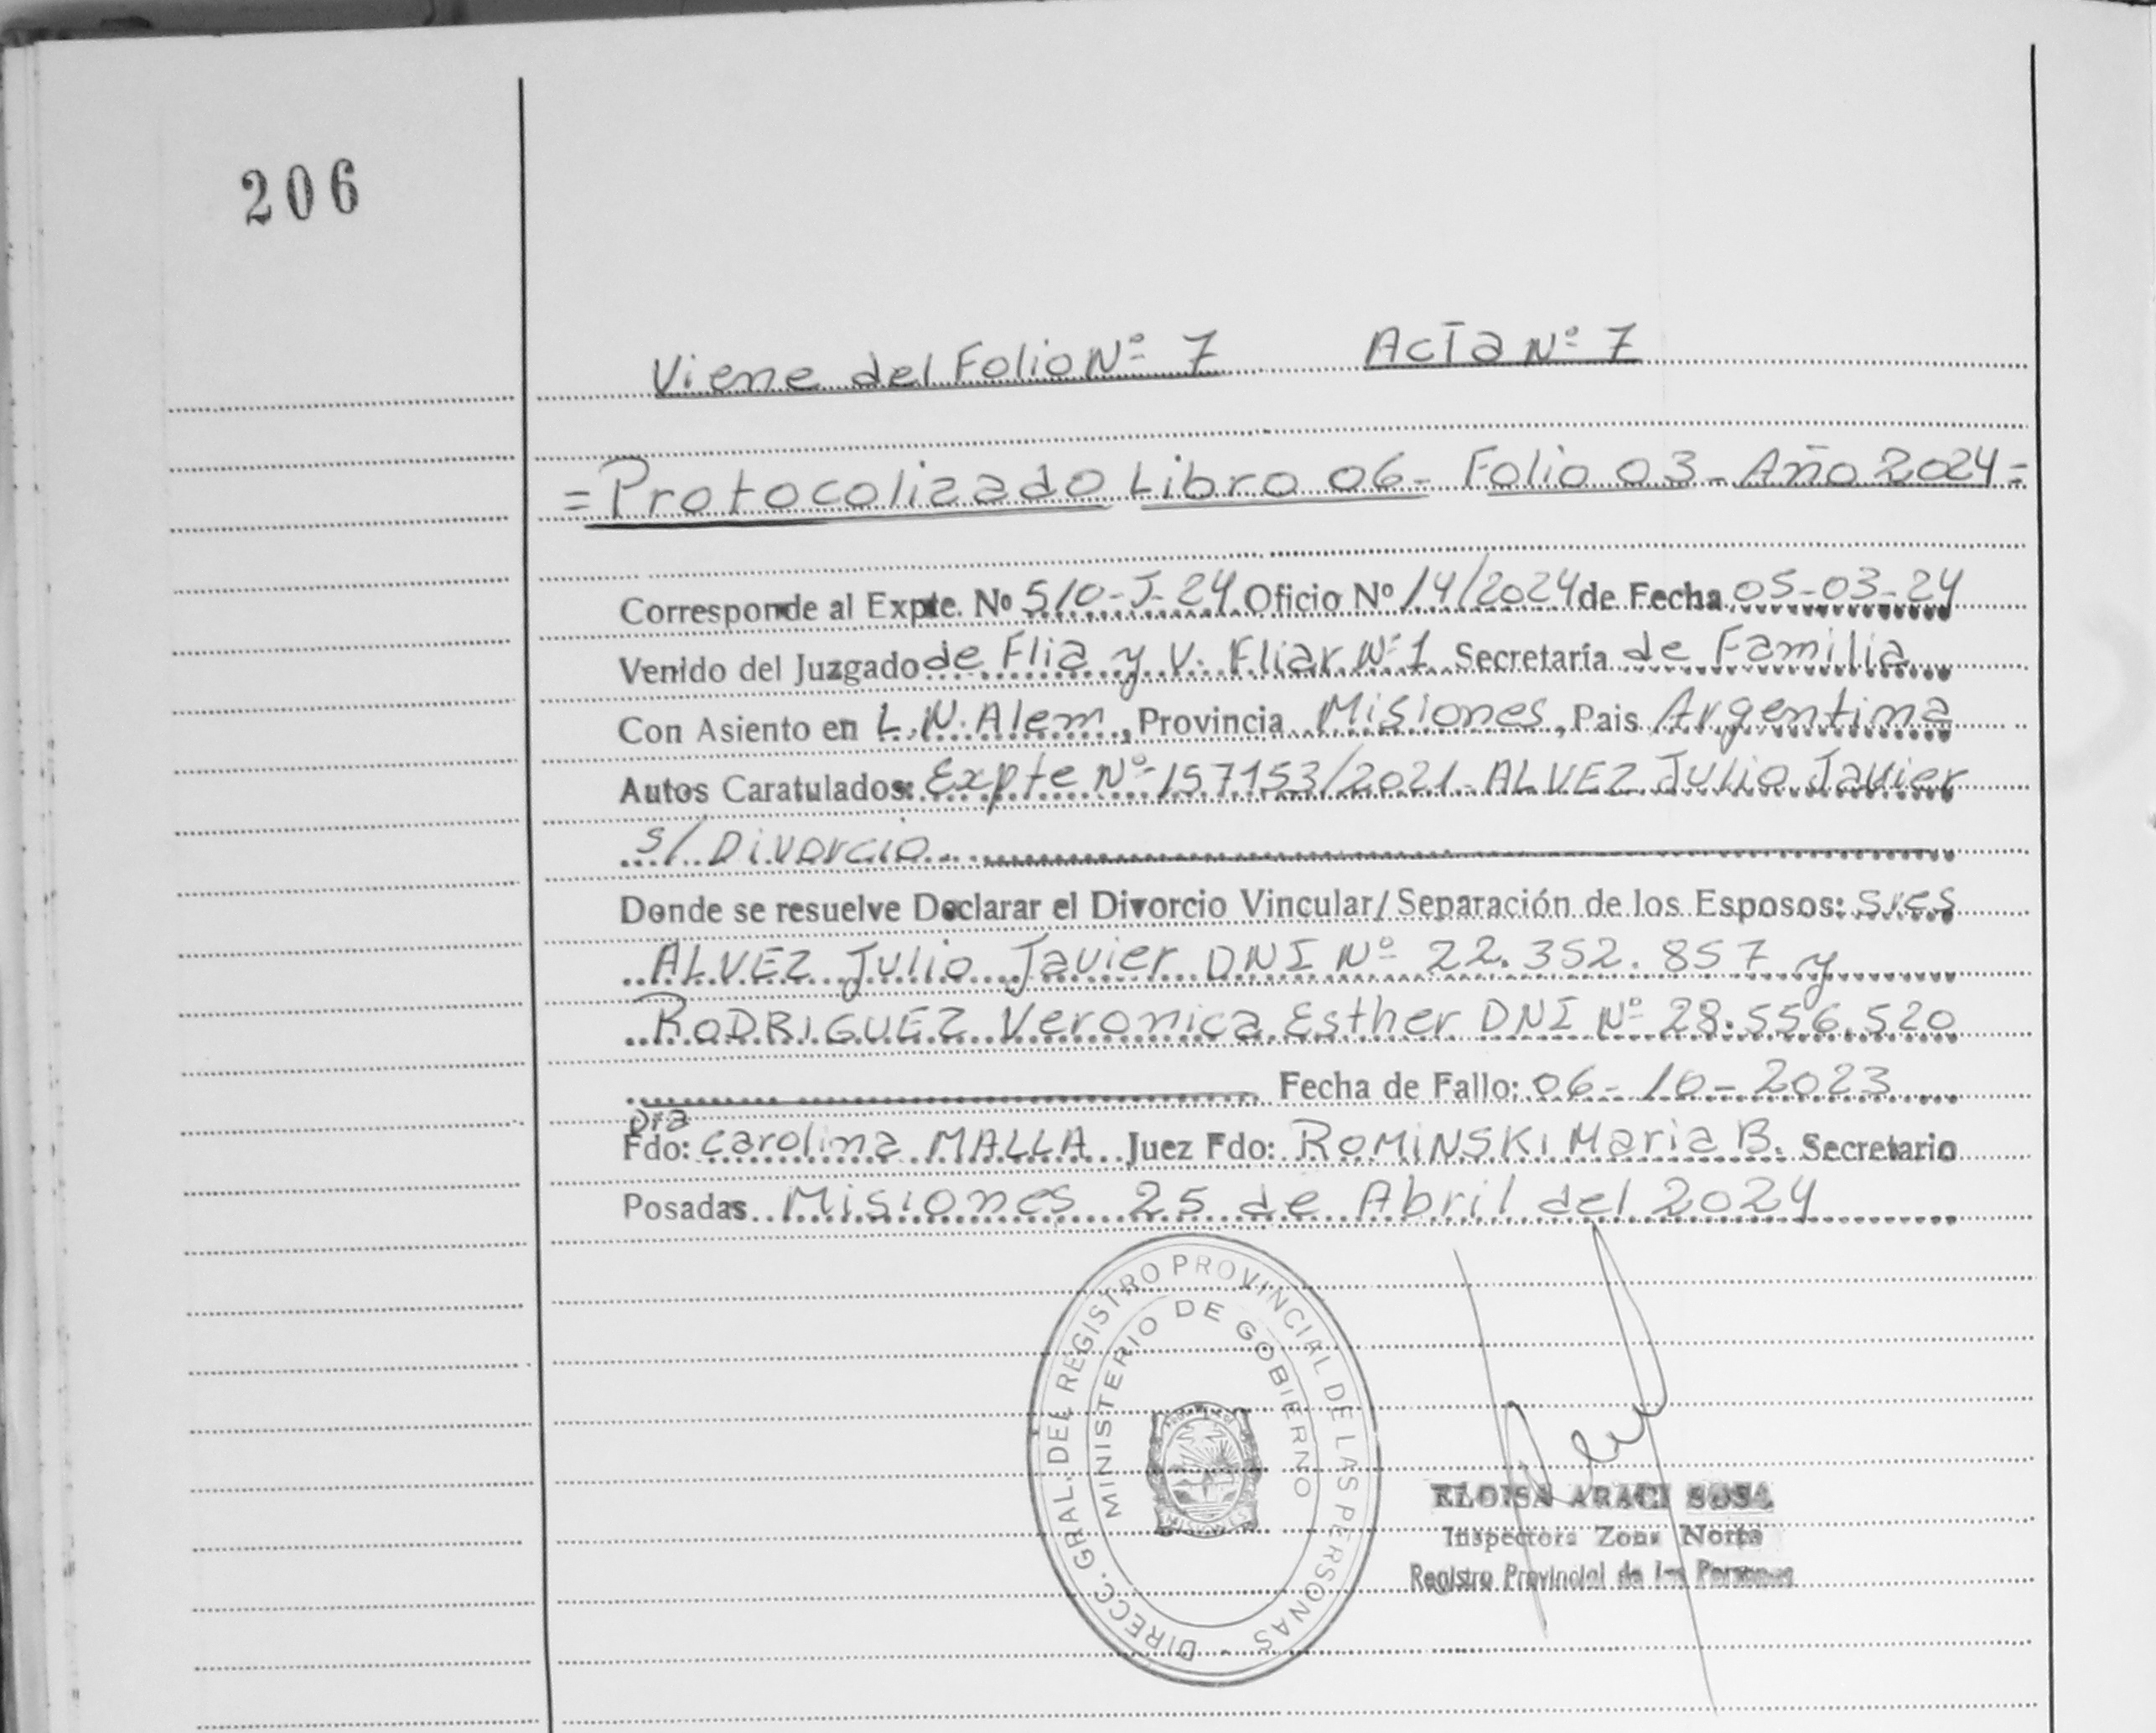 206
Viene del Folio Nº 7 Acta Nº 7
= Protocolizado Libro 06 - Folio 03 - Año 2024 =
Corresponde al Expte. Nº 510-J-24 Oficio Nº 14/2024 de Fecha 05-03-24
Venido del Juzgado de Flia y V. Fliar Nº 1 Secretaría de Familia
Con Asiento en L.N. Alem, Provincia Misiones, Pais Argentina
Autos Caratulados: Expte Nº 157153/2021 - ALVEZ Julio Javier
s/ Divorcio
Donde se resuelve Declarar el Divorcio Vincular/ Separación de los Esposos: sres
ALVEZ Julio Javier DNI Nº 22.352.857 y
RODRIGUEZ Veronica Esther DNI Nº 28.556.520
Fecha de Fallo: 06-10-2023
Dra
Fdo: Carolina MALLA Juez Fdo: ROMINSKI Maria B. Secretario
Posadas Misiones 25 de Abril del 2024
DIRECC. GRAL. DEL REGISTRO PROVINCIAL DE LAS PERSONAS -
MINISTERIO DE GOBIERNO
MISIONES
ELOISA ARACI SOSA
Inspectora Zona Norte
Registro Provincial de las Personas